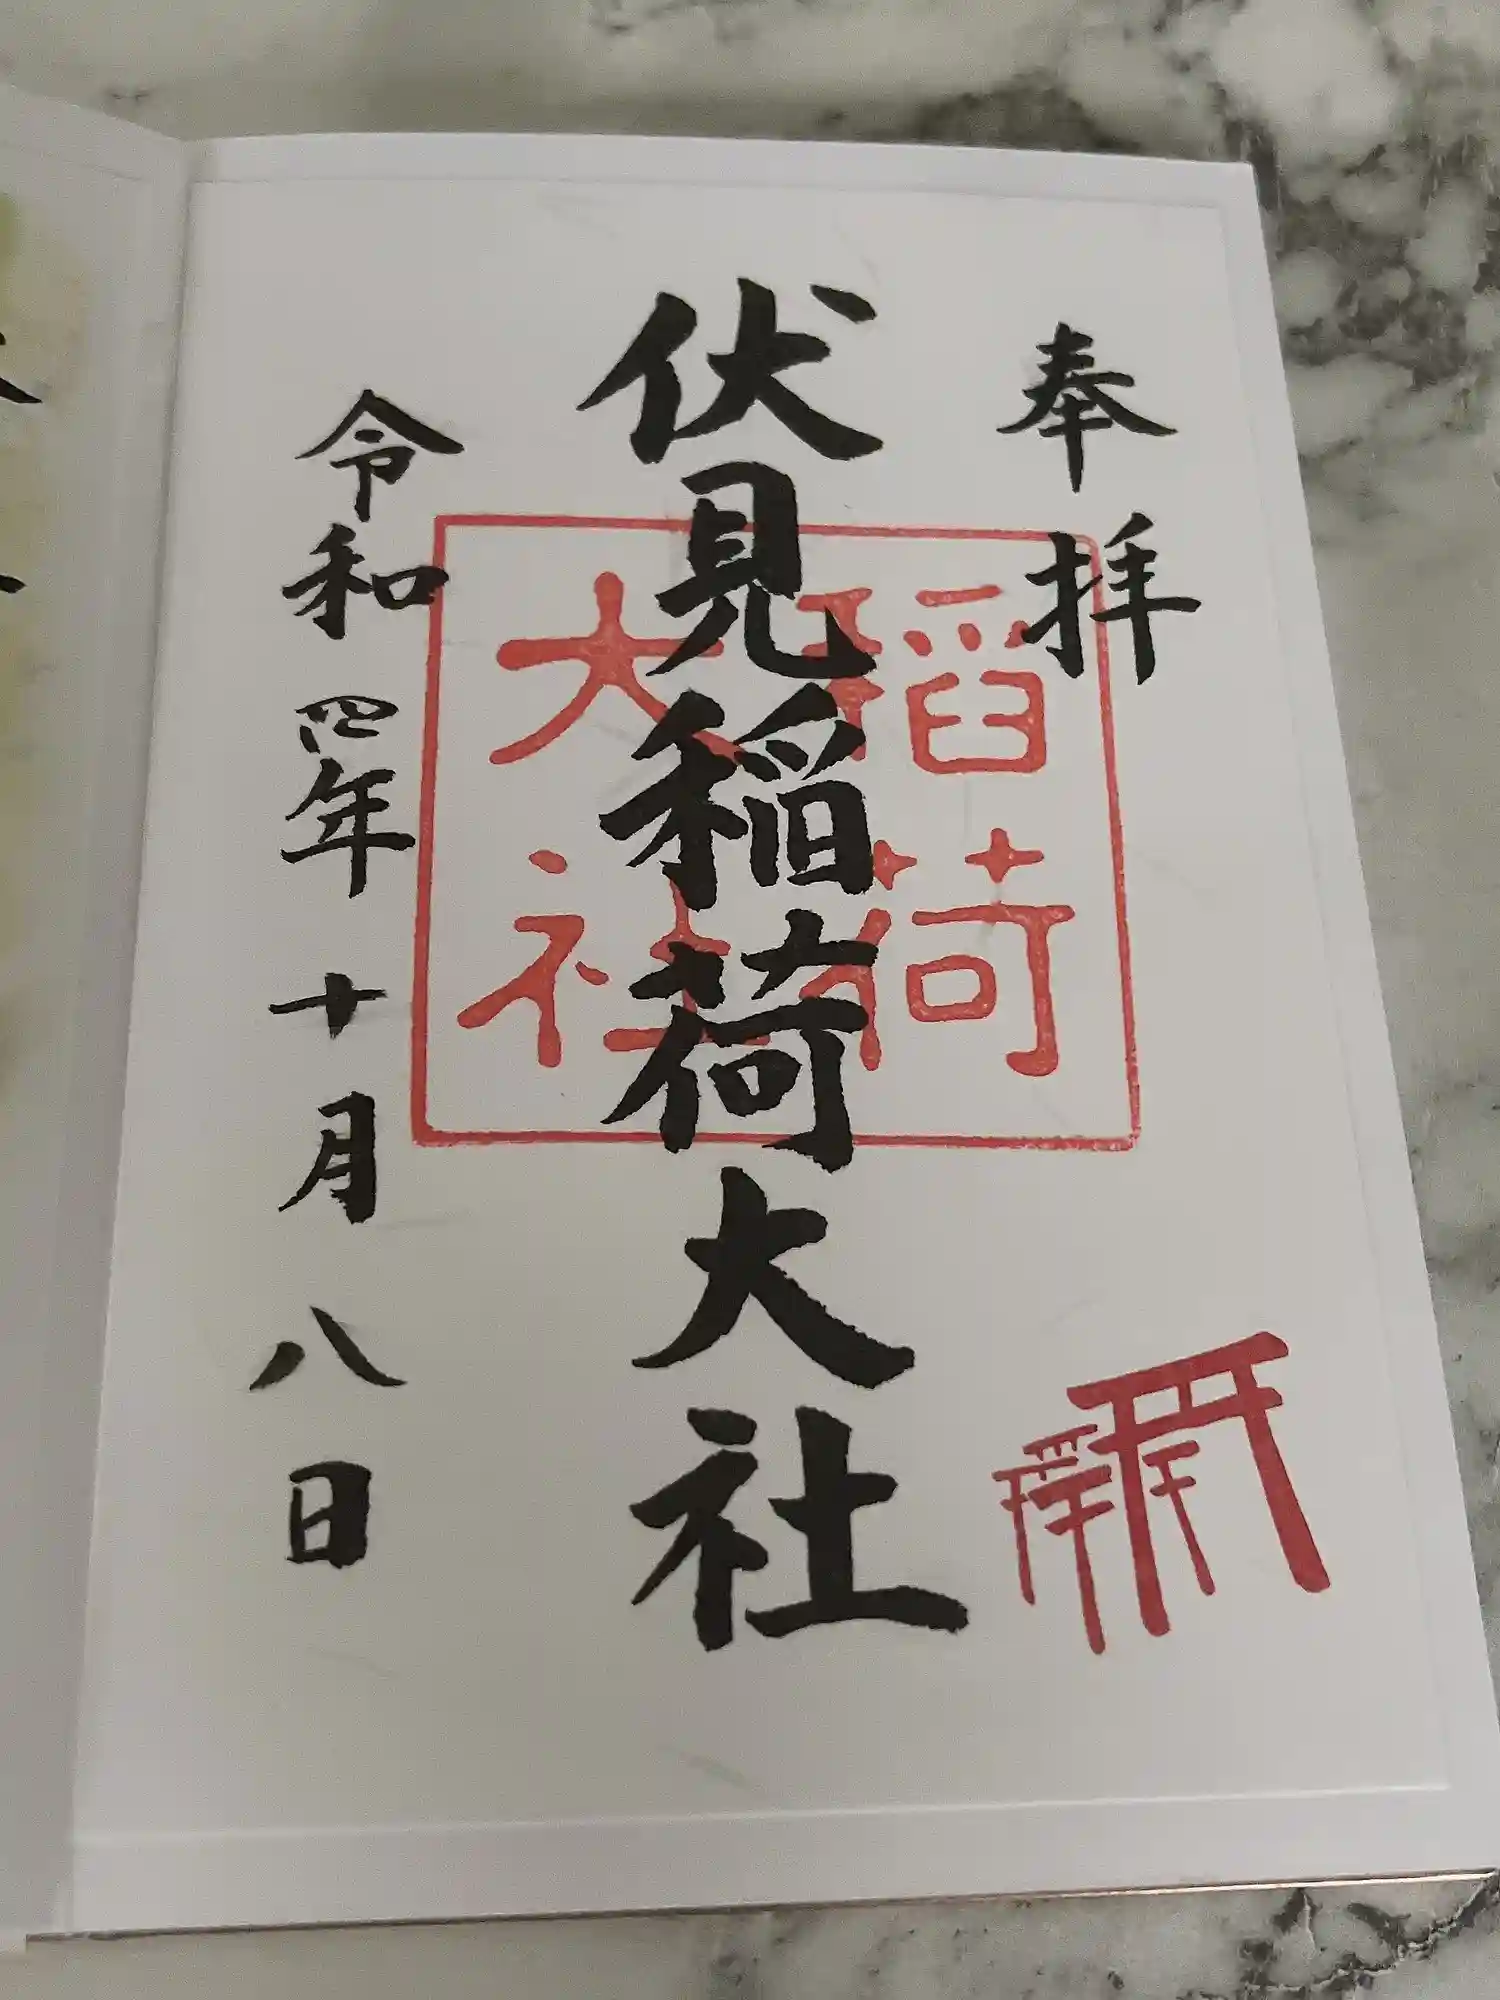 奉拝
伏見稲荷大社
稲荷
大社
令和四年十月八日